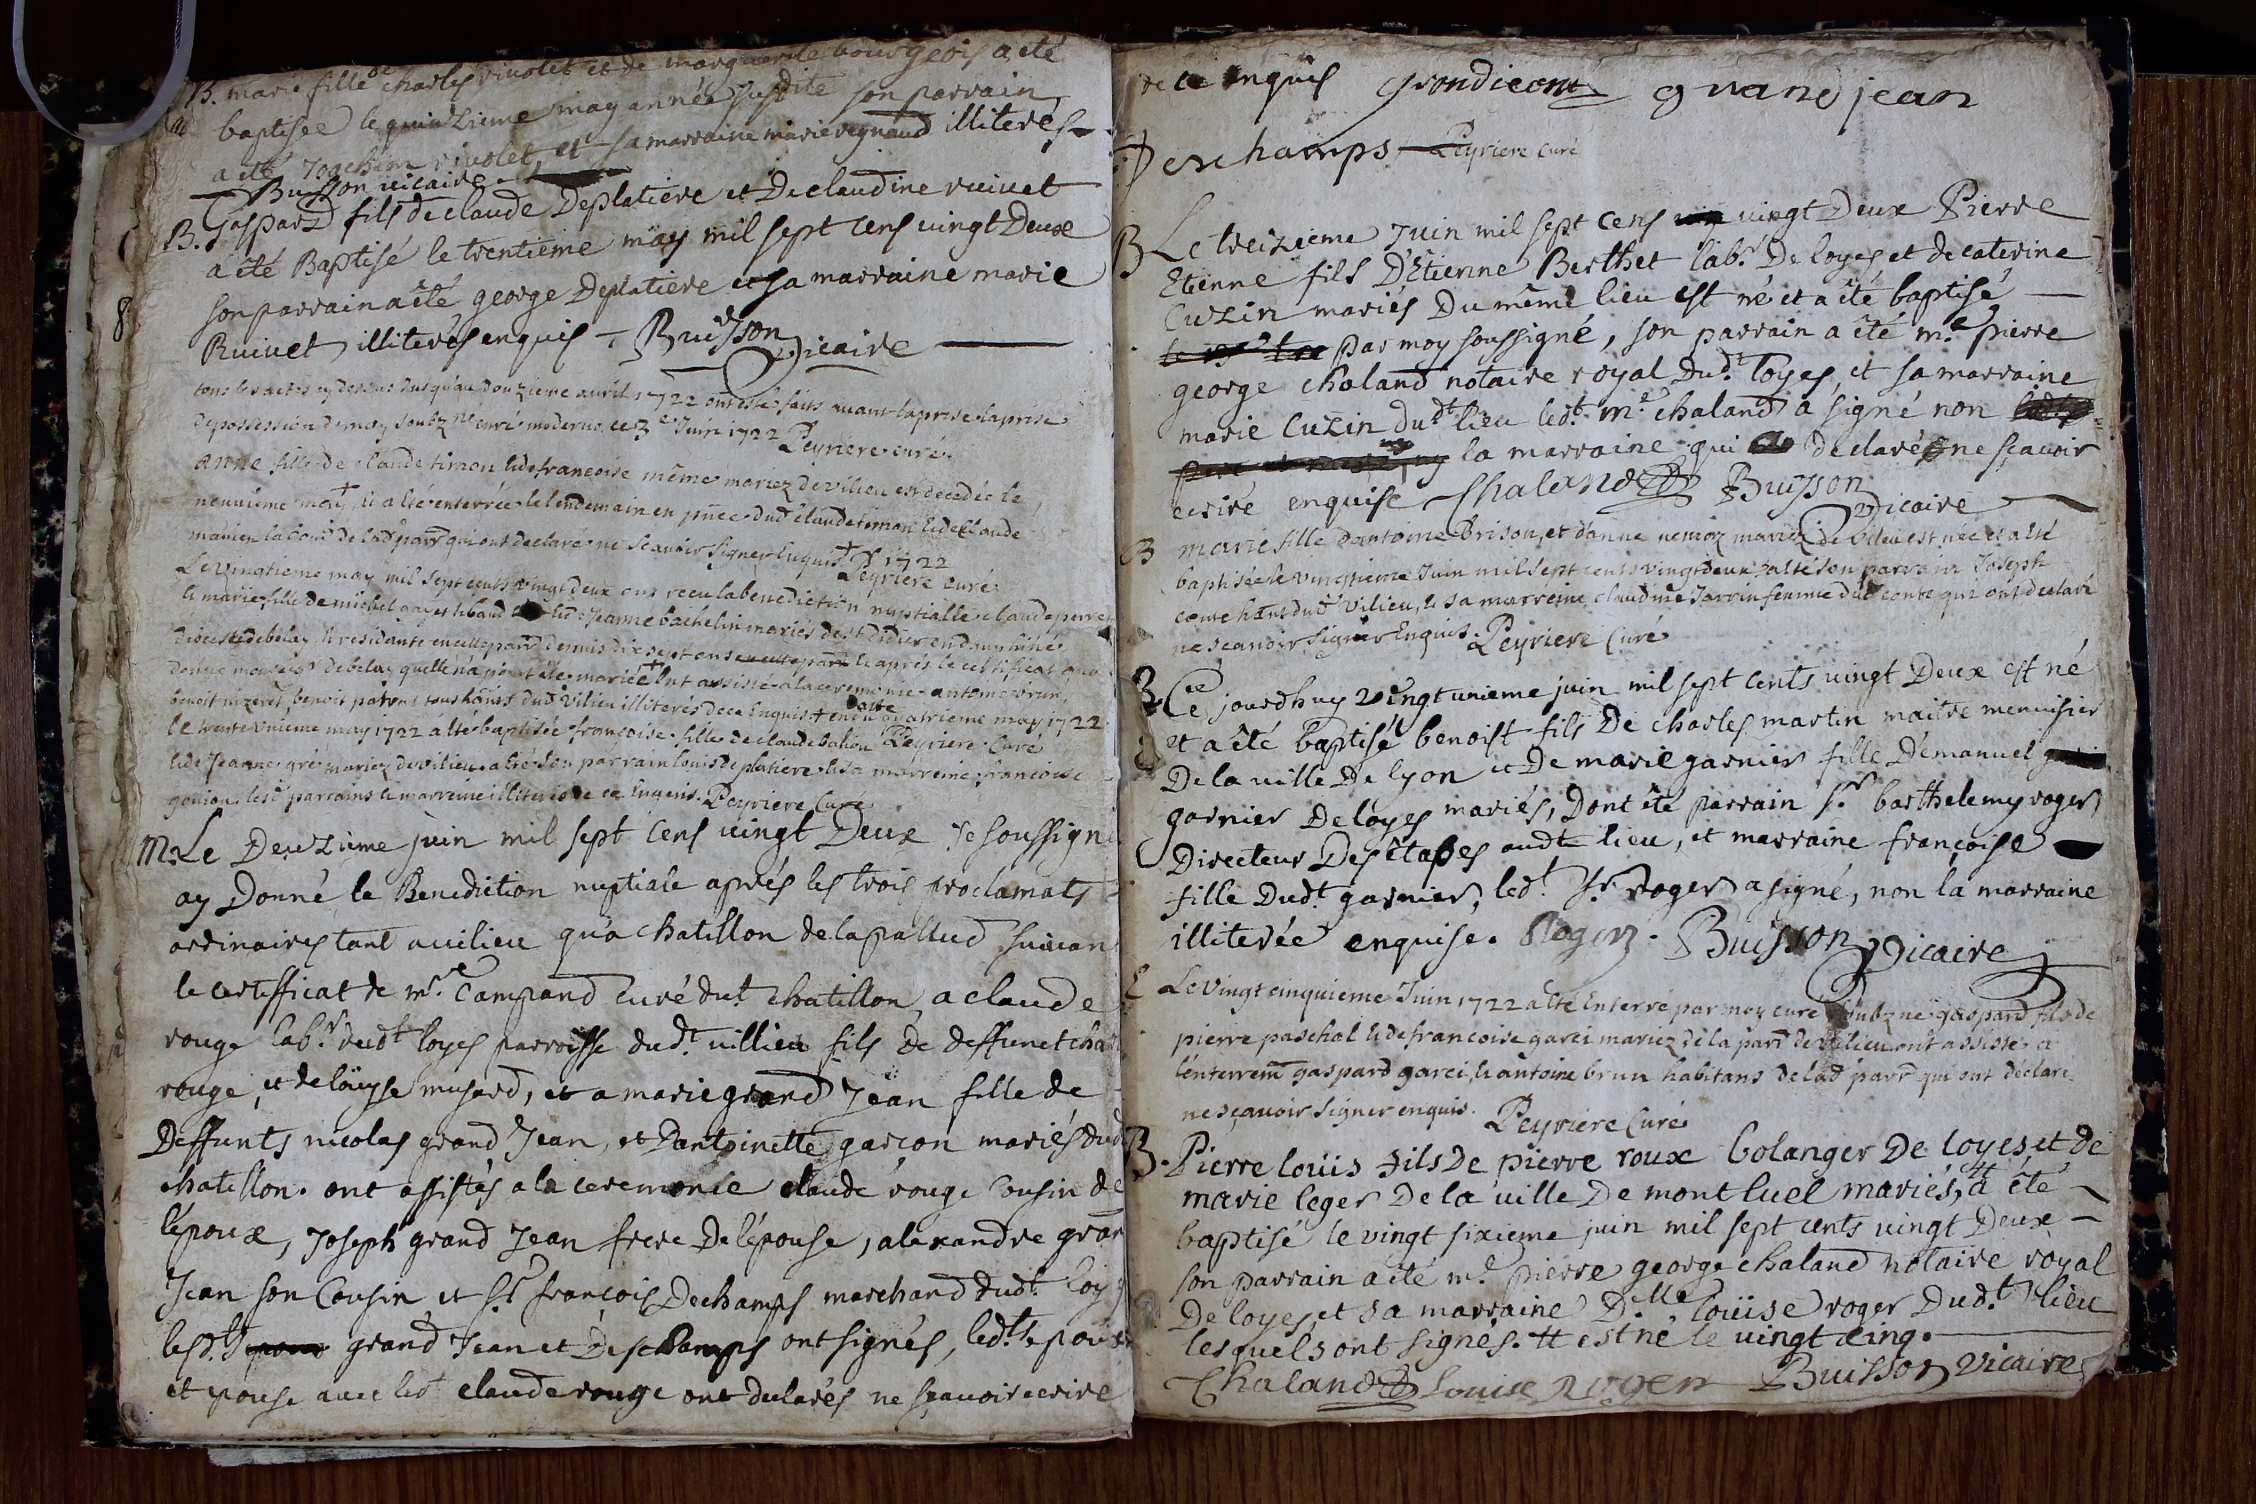 B. marie fille de charles rivolet et de marguerite bourgeois a eté
baptisée le quinzieme may année susdite son parrain
a eté Joachim rivolet, et sa marraine marie regnaud illiterés
Buisson vicaire
B. Gaspard fils de claude Deplatiere et De claudine ruivet
a êté Baptisé le trentieme may mil sept cens vingt Deux
son parrain a êté george Deplatiere et sa marraine marie
Ruivet illiterés enquis - Buisson Vicaire
tous les actes cy dessus jusqu'au douzieme avril 1722 ont esté faits avant la prise la prise
de possession de moy soubz né curé moderne, ce 3e Juin 1722 Peyriere curé.
anne fille de claude timon & de francoise même mariez de vilieu est decedée le
neuvieme may + & a esté enterrée le lendemain en pnce dud claude timon & de claude
la lad parr qui ont declaré ne scavoir signer Enquis + 1722 Peyriere curé
Le vingtieme may mil sept cents vingt deux ont receu la benediction nuptialle claude perret
& marie fille de michel & de Jeanne bachelin mariés de st didier en dauphiné
diocese de belay & residante en cette parr depuis dix sept ans & aprés le certificat que
donne monsr de belay quelle n'a point été mariée + ont assisté a la ceremonie antoine brun,
benoit benoit tous hans dud vilieu illiterés de ce Enquis quatrieme may 1722
le trente unieme may 1722 a été baptisée francoise fille de claude Peyriere Curé
& de Jeanne gré mariez de vilieu a été son parrain louis deplatiere & sa marreine francoise
goujon lesd parrains & marreine illiterés de ce Enquis. Peyriere Curé
M. Le Deuzieme juin mil sept cens vingt Deux Je soussigné
ay Donné la Benediction nuptiale aprés les trois proclamats
ordinaires tant a vilieu qu'a chatillon de la pallud suivan
le certifficat de mr. Campand curé dud. chatillon, a claude
rouge labr. dudt loyes parroisse dudt. villieu fils de deffunct
rouge, et de loüyse musard, et a marie grand Jean fille de
Deffunts nicolas grand Jean, et D'antoinette garçon mariés dud
chatillon. ont assistés a la ceremonie claude rouge Cousin de
l'époux, Joseph grand Jean frere De l'épouse, alexandre gran
Jean son Cousin et sr. françois Dechamps marchand dudt. loy
lesdt. grand Jean et Deschamps ont signés, ledt. epoux
et epouse avec ledt claude rouge ont declarés ne sçavoir ecrire
de ce enquis grandjean grand jean
Deschamps Peyriere curé
B Le treizieme Juin mil sept cens vingt Deux Pierre
Etienne fils D'Etienne Berthet labr. De loyes et de caterine
Cuzin mariés Du même lieu est né et a êté baptisé
par moy soussigné, son parrain a êté me. pierre
george chaland notaire royal Dudt. loyes, et sa marraine
marie Cuzin dudt lieu ledt. me. chaland a signé non
la marraine qui a declaré ne sçavoir
ecrire enquise Chaland Buisson Vicaire
B marie fille d'antoine Brison, et d'anne mariez de vilieu est née et a été
baptisée le vingtieme Juin mil sept cents vingt deux a été son parrain Joseph
conte hant dud vilieu, & sa marreine claudine Jarrin femme dud conte qui ont declaré
ne scavoir signer Enquis. Peyriere Curé
B. Ce jourdhuy vingt unieme juin mil sept cents vingt Deux est né
et a été baptisé benoist fils De charles martin maitre menuisier
De la ville De lyon et De marie garnier fille D'emanuel
garnier De loyes mariés, Dont été parrain sr. barthelemy roger
Directeur Des étapes audt lieu, et marraine françoise
fille Dudt. garnier, ledt. sr. roger a signé, non la marraine
illiterée enquise. Roger. Buisson Vicaire
E Le vingt cinquieme Juin 1722 a été Enterré par moy curé soubz né gaspard fils de
pierre paschal & de francoise garci mariez de la parr de vilieu ont assisté a
l'enterrem gaspard garci, & antoine brun habitans de lad parr qui ont declaré
ne sçavoir signer enquis. Peyriere Curé
B. Pierre loüis fils De pierre roux bolanger De loyes, et de
marie leger De la ville De montluel mariés, # a été
baptisé le vingt sixieme juin mil sept cents vingt Deux
son parrain a été me. pierre george chaland notaire royal
De loyes, et sa marraine Dlle loüise roger Dudt. lieu
lesquels ont signés. # est né le vingt cinq.
Chaland Louise Roger Buisson Vicaire